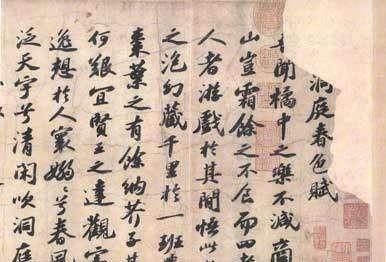 洞庭春色賦
聞橘中之樂不減商
山豈霜餘之不食而四老
人者游戲於其間悟此
之泡幻藏千里於一班
棗葉之有餘納芥子其
何艱宜賢王之達觀
逸想於人寰嫋〻兮春
泛天宇兮清閑吹洞庭